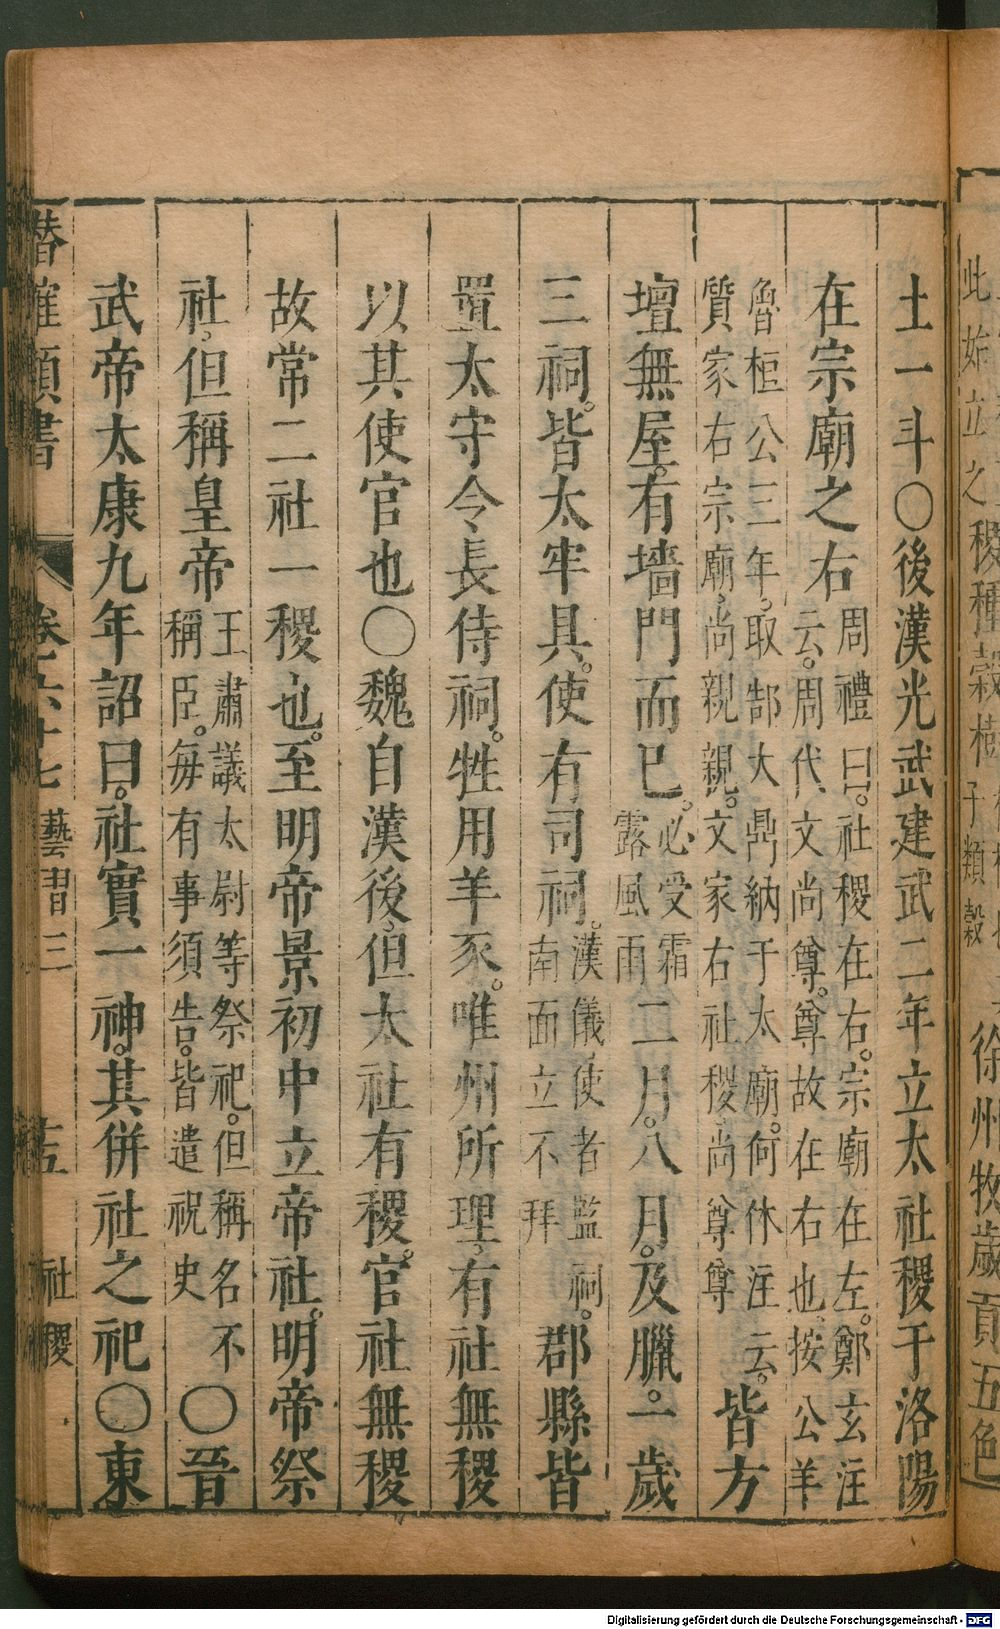 此始立之
稷種穀樹
子類穀
徐州牧歲貢五色
土一斗○後漢光武建武二年立太社稷于洛陽
在宗廟之右周禮曰。社稷在右。宗廟在左。鄭玄注
云。周代文尚尊。尊故在右也、按公羊
魯桓公三年、取郜大鼎納于太廟。何休注云。皆方
質家右宗廟、尚親親。文家右社稷、尚尊尊
壇無屋。有墻門而已。必受霜二月。八月。及臘。一歲
露風雨
三祠。皆太牢具。使有司祠。漢儀、使者監祠。郡縣皆
南面立不拜
置太守令長侍祠。牲用羊豕。唯州所理、有社無稷
以其使官也○魏自漢後、但太社有稷。官社無稷
故常二社一稷也。至明帝景初中立帝社。明帝祭
社、但稱皇帝王肅議太尉等祭祀。但稱名不○晉
稱臣。每有事須告。皆遣祝史
武帝太康九年詔曰。社實一神。其併社之祀○東
潛確類書 卷六十七 藝習三 十五 社稷
Digitalisierung gefördert durch die Deutsche Forschungsgemeinschaft - DFG